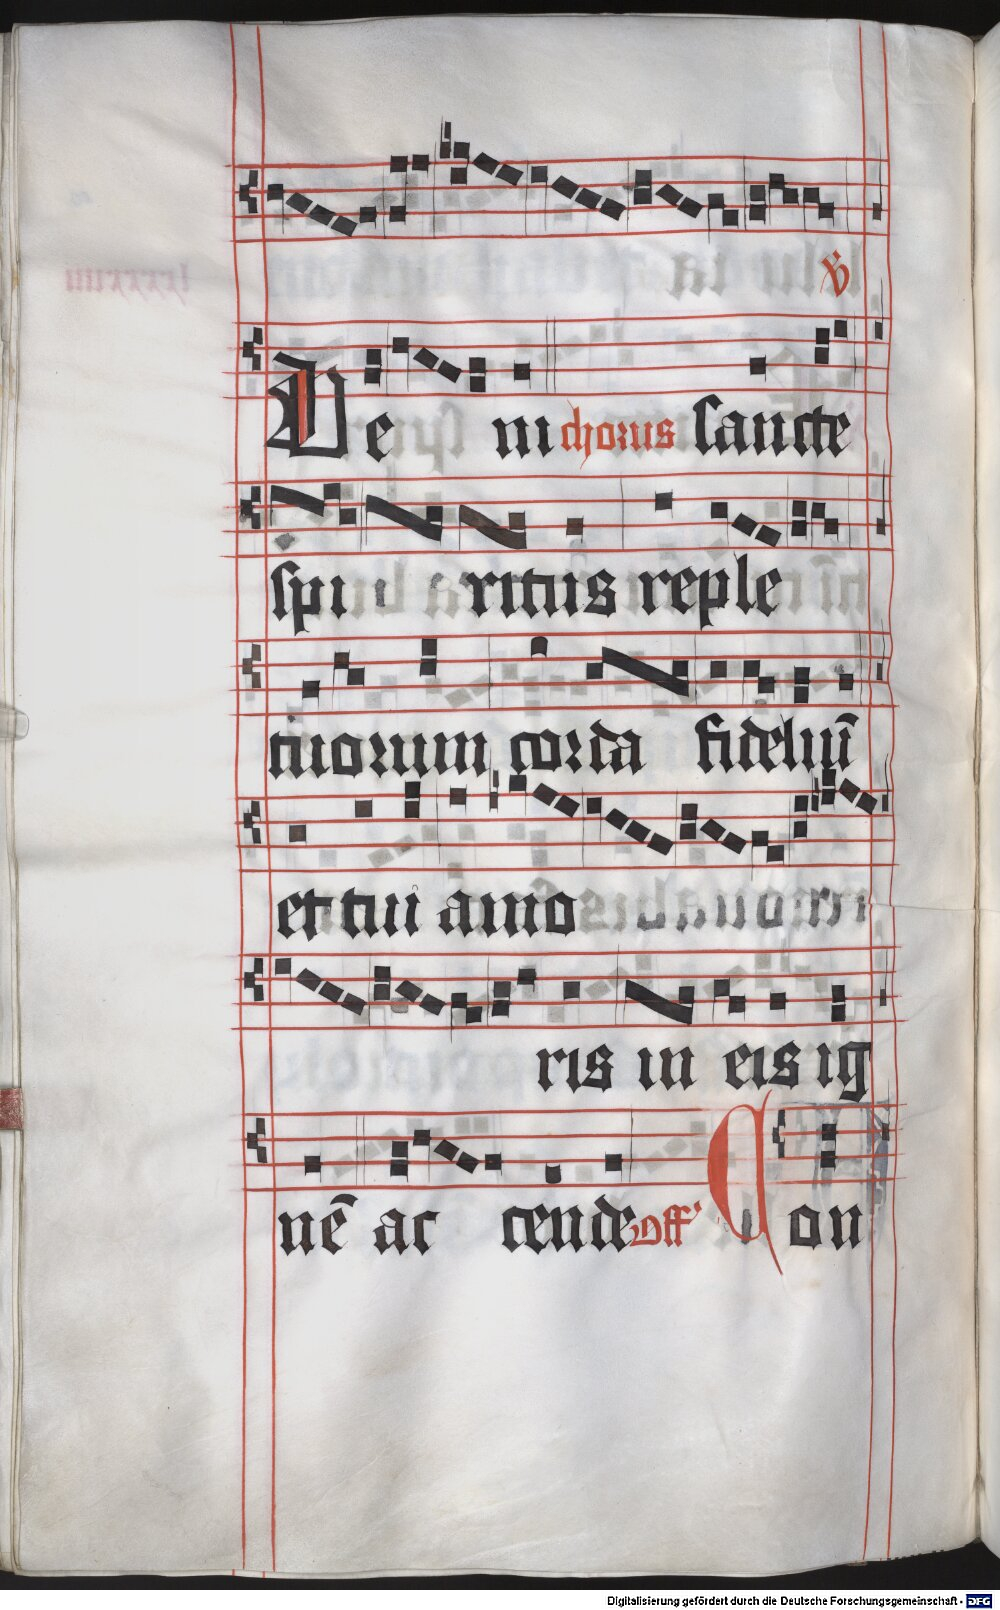 ℣
Ve ni chorus sancte
spi ritus reple
tuorum corda fideliū
et tui amo
ris in eis ig
nē ac cende off' Con
Digitalisierung gefördert durch die Deutsche Forschungsgemeinschaft - DFG